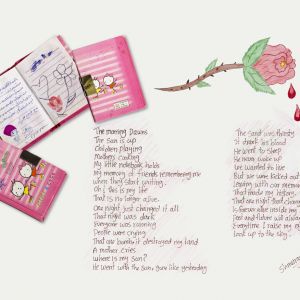 The morning Dawns
The sun is up
Children playing
Mothers cooking
My little notebook holds
My memory of friends remembering me
when they start writing.
Oh! this is my life
That is no longer alive.
One night just changed it all
That night was dark
Everyone was running
People were crying
That one bomb, it destroyed my land
A mother cries
Where is my son?
He went with the sun, gone like yesterday
The sand was thirsty
It drank his blood
He went to sleep
He never woke up
We wanted to live
But we were kicked out
Leaving with our memories
That
That one night that changed
is forever alive inside my
Past and future will always
Everytime I raise my
Look up to the sky